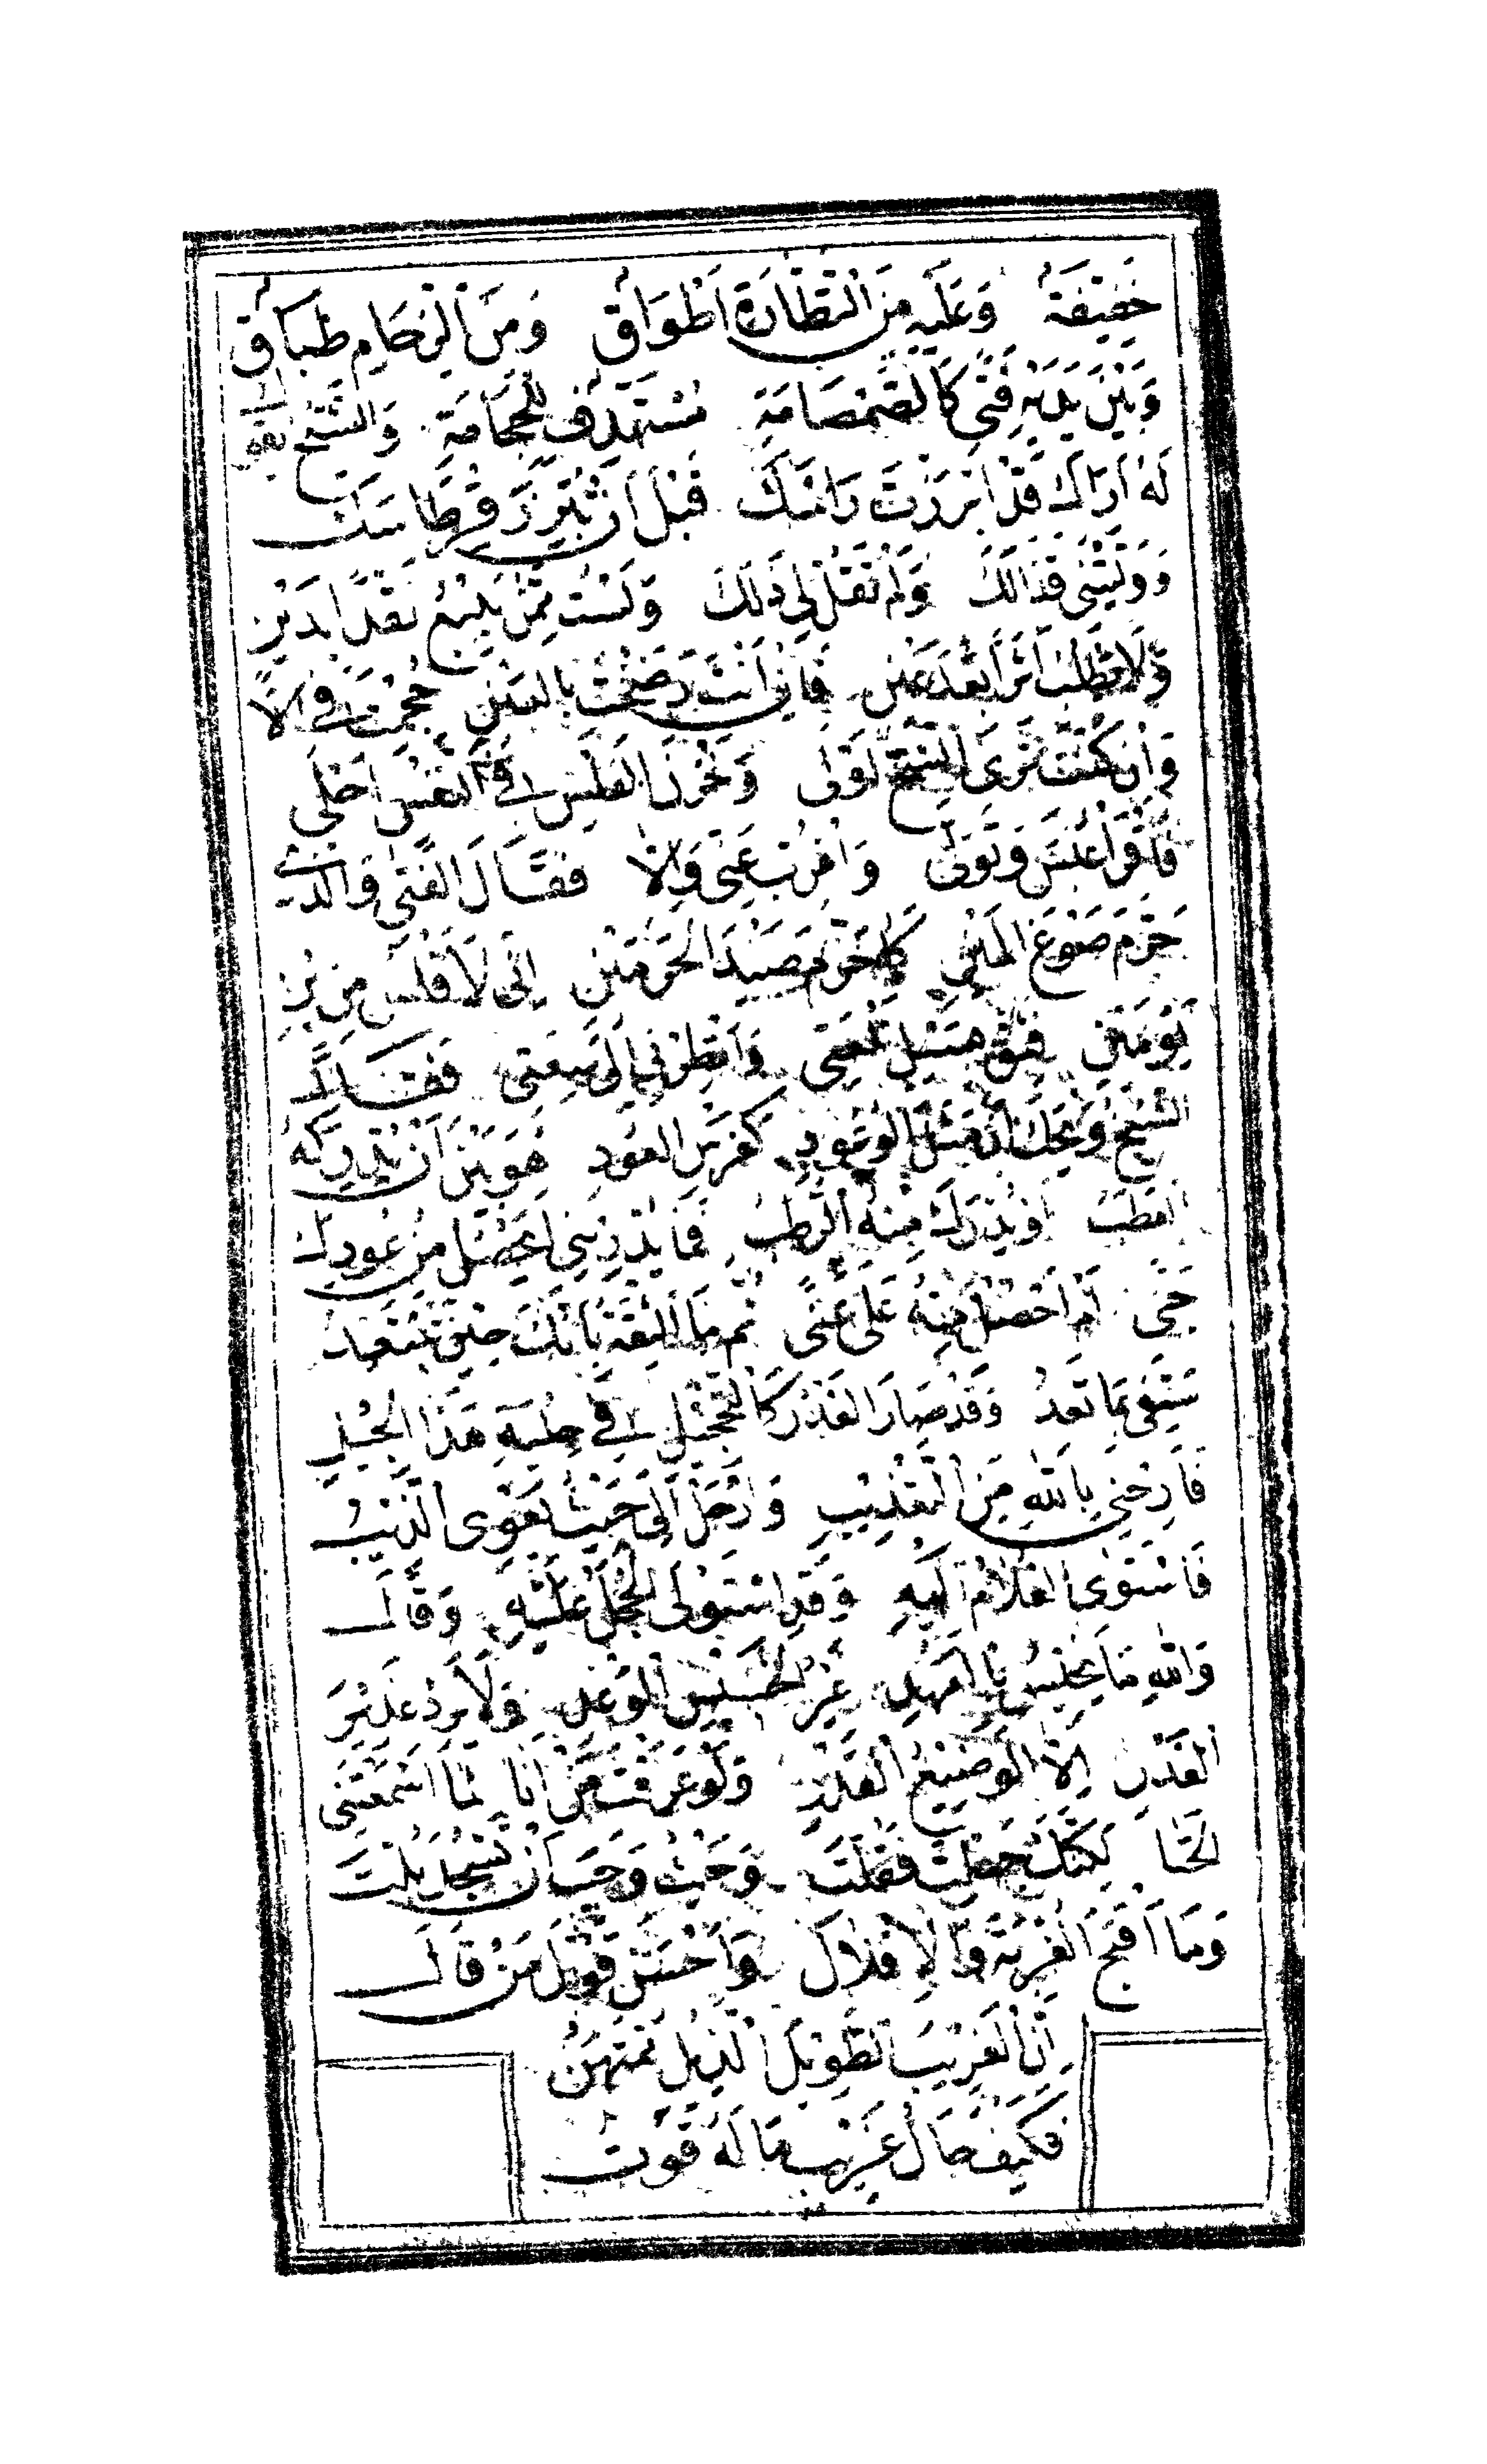 خَفِيفَةٌ وَعَلَيْهِ مِنَ النَّظَّارَةِ أَطْوَاقٌ وَمِنَ الزِّحَامِ طِبَاقٌ
وَبَيْنَ يَدَيْهِ فَتًى كَالصَّمْصَامَةِ مُسْتَهْدِفٌ لِلْحِجَامَةِ وَالشَّيْخُ يَقُولُ
لَهُ أَرَاكَ قَدْ أَبْرَزْتَ رَأْسَكَ قَبْلَ أَنْ تُبْرِزَ قِرْطَاسَكَ
وَوَلَّيْتَنِي قَذَالَكَ وَلَمْ تَقُلْ لِي ذَا لَكَ وَلَسْتُ مِمَّنْ يَبِيعُ نَقْدًا بِدَيْنٍ
وَلَا يَطْلُبُ أَثَرًا بَعْدَ عَيْنٍ فَإِنْ أَنْتَ رَضَخْتَ بِالْعَيْنِ حُجِمْتَ فِي الْأَ
وَإِنْ كُنْتَ تَرَى الشُّحَّ أَوْلَى وَخَزْنَ الْفَلْسِ فِي النَّفْسِ أَحْلَى
فَاقْرَأْ عَبَسَ وَتَوَلَّى وَاغْرُبْ عَنِّي وَإِلَّا فَقَالَ الْفَتَى وَالَّذِي
حَرَّمَ صَوْغَ الْمَيْنِ كَمَا حَرَّمَ صَيْدَ الْحَرَمَيْنِ إِنِّي لَأَفْلَسُ مِنِ ابْنِ
يَوْمَيْنِ فَثِقْ بِسَيْلِ تَلْعَتِي وَأَنْظِرْنِي إِلَى سَعَتِي فَقَالَ
الشَّيْخُ وَيْحَكَ إِنَّ مَثَلَ الْوُعُودِ كَغَرْسِ الْعُودِ هُوَ بَيْنَ أَنْ يُدْرِكَهُ
الْعَطَبُ أَوْ يُدْرَكَ مِنْهُ الرُّطَبُ فَمَا يُدْرِينِي أَيَحْصُلُ مِنْ عُودِكَ
جَنًى أَمْ أَحْصُلُ مِنْهُ عَلَى ضَنًى ثُمَّ مَا الثِّقَةُ بِأَنَّكَ حِينَ تَبْتَعِدُ
سَتَفِي بِمَا تَعِدُ وَقَدْ صَارَ الْغَدْرُ كَالتَّحْجِيلِ فِي حِلْيَةِ هَذَا الْجِيلِ
فَأَرِحْنِي بِاللَّهِ مِنَ التَّعْذِيبِ وَارْحَلْ إِلَى حَيْثُ يَعْوِي الذِّيبُ
فَاسْتَوَى الْغُلَامُ إِلَيْهِ وَقَدِ اسْتَوْلَى الْخَجَلُ عَلَيْهِ وَقَالَ
وَاللَّهِ مَا يَخِيسُ بِالْعَهْدِ غَيْرُ الْخَسِيسِ الْوَغْدِ وَلَا يَرِدُ غَدِيرَ
الْغَدْرِ إِلَّا الْوَضِيعُ الْقَدْرِ وَلَوْ عَرَفْتَ مَنْ أَنَا لَمَا أَسْمَعْتَنِي
الْخَنَا لَكِنَّكَ جَهِلْتَ فَقُلْتَ وَحَيْثُ وَجَبَ أَنْ تَسْجُدَ بُلْتَ
وَمَا أَقْبَحَ الْغُرْبَةَ وَالْإِقْلَالَ وَأَحْسَنَ قَوْلَ مَنْ قَالَ
إِنَّ الْغَرِيبَ الطَّوِيلَ الذَّيْلِ مُمْتَهَنٌ
فَكَيْفَ حَالُ غَرِيبٍ مَا لَهُ قُوتُ